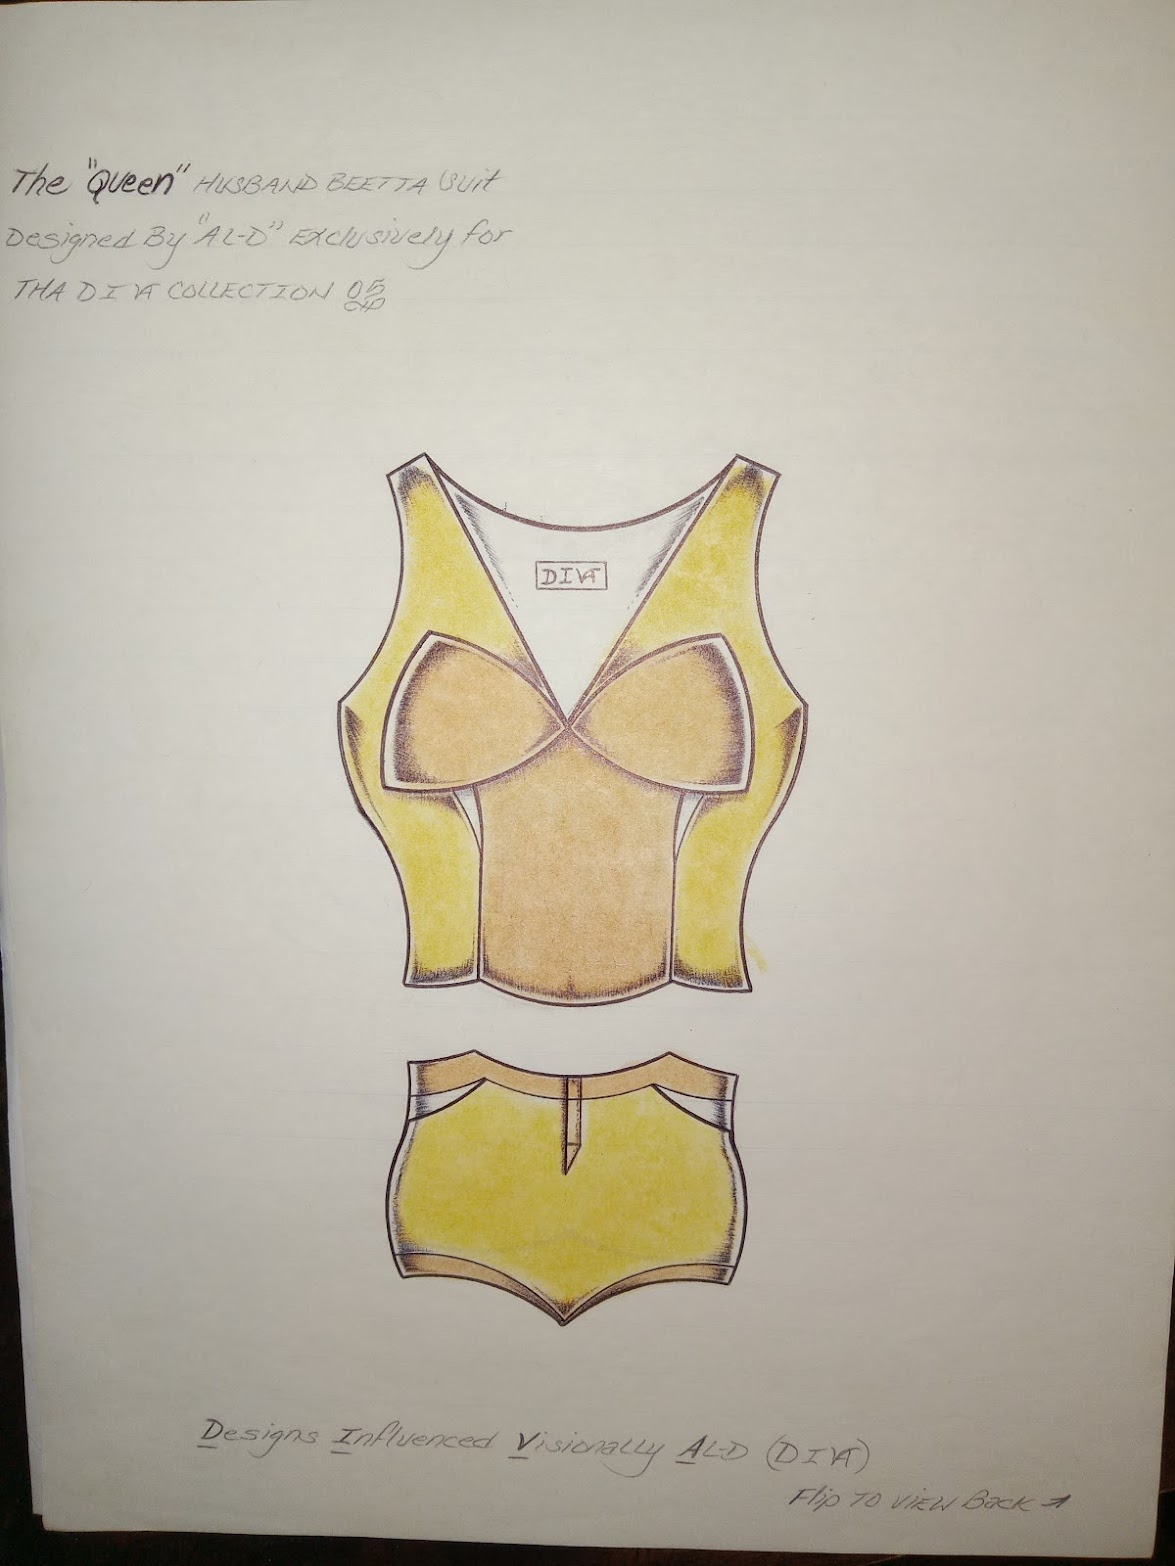 The "Queen" HUSBAND BEETTA Suit
Designed By "AL-D" Exclusively for
THA DIVA COLLECTION 05
DIVA
Designs Influenced Visionally AL-D (DIVA)
Flip TO VIEW Back